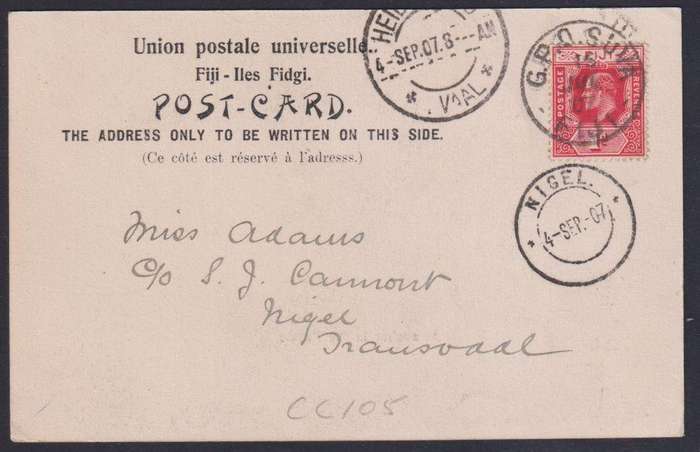 Union postale universelle.
Fiji - Iles Fidgi.
POST-CARD.
THE ADDRESS ONLY TO BE WRITTEN ON THIS SIDE.
(Ce côté est réservé à l'adresss.)
4-SEP.07.8-AM
VAAL
G.P.O. SUVA
POSTAGE
REVENUE
NIGEL.
4-SEP.-07
Miss Adams
c/o S. J. Cammont
Nigel
Transvaal
CC105